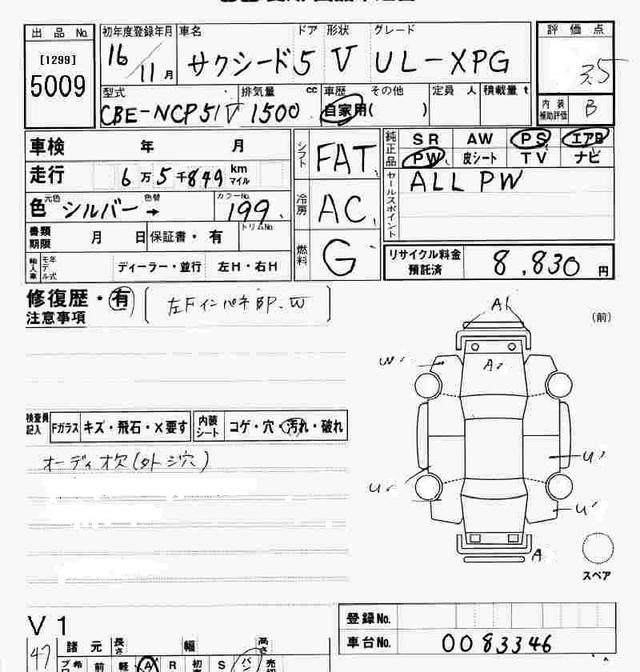 出品 No. 初年度登録年月 車名 ドア 形状 グレード 評価点
[1299] 16 サクシード 5 V UL-XPG 3.5
5009 11月
型式 排気量 cc 車歴 その他 定員 人 積載量 t 内装補助評価 B
CBE-NCP51V 1500 自家用( )
車検 年 月 シフト FAT 純正品 SR AW PS エアB
PW 皮シート TV ナビ
走行 6万5千849 km マイル セールスポイント ALL PW
色 元色 シルバー 色替 → カラーNo. 199 冷房 AC
書類期限 月 日 保証書・有 トリムNo. 燃料 G リサイクル料金預託済 8,830 円
輸入車 モデル年式 ディーラー・並行 左H・右H
修復歴・有 左Fインパネ BP.W
注意事項
(前)
A1
W'
A2
検査員記入 Fガラス キズ・飛石・X要す 内装シート コゲ・穴・汚れ・破れ
オーディオ欠(外シ穴)
U'
U'
U'
A
スペア
V1
登録No.
車台No. 0083346
47 諸元 長さ 幅 高さ